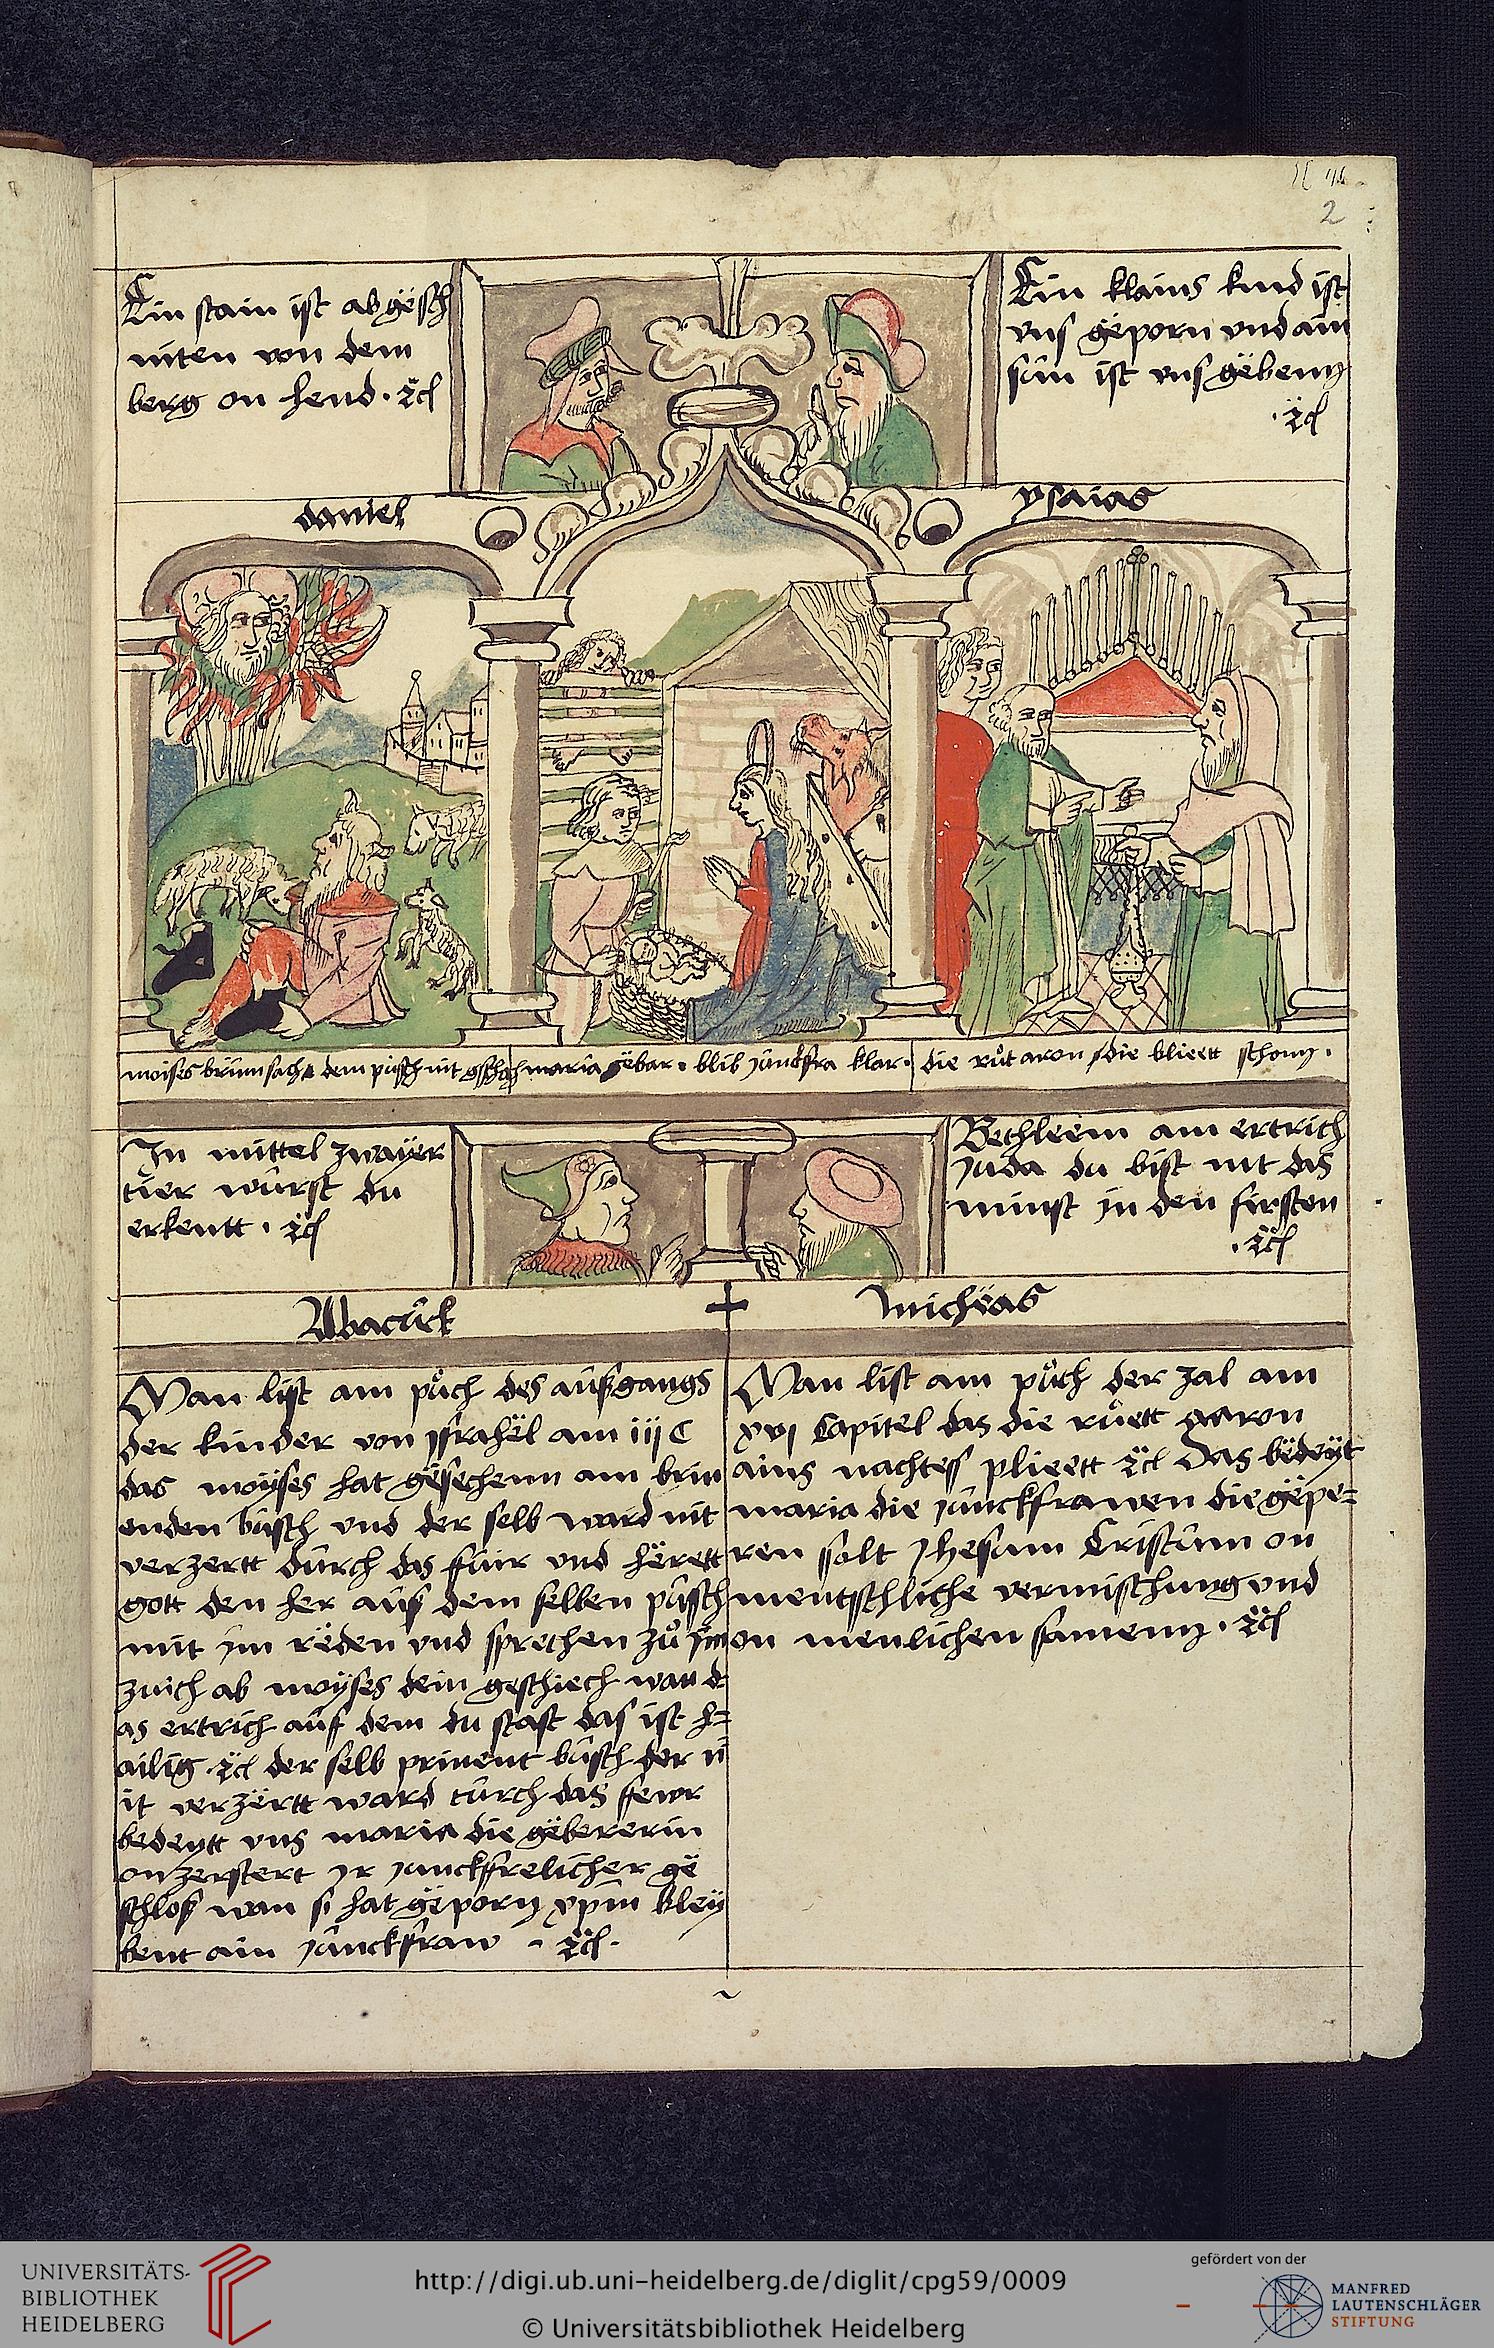 2
Ein stain ist abgësch
niten von dem
berg on hend . ⁊c̈
Ein klains kind ist
vns geporn vnd ain
sûn ist vns gëbenn
. ⁊c̈
daniel
ysaias
moises brinn sach dem pusch nit gschach
maria gebar . blib junckfra klar .
die růt aron sie blieett schonn .
In mittel zwayer
tier wûrst du
erkentt . ⁊c̈
Bethleem am ertrich
juda du bist nit das
minst jn den firsten
. ⁊c̈
Abacûck
michëas
Man list am půch des aûsgangs
der kinder von jsrahël am iij C
das moyses hat gësechenn am brin
enden bûsch vnd der selb ward nit
verzertt dûrch das fûir vnd hërett
gott den her aûs dem selben pûsch
mit jm rëden vnd sprechen zů jm
zuich ab moyses dein geschiech wan d
as ertrich aûf dem du stast das ist h=
ailig . ⁊c̈ der selb prinent bûsch der n
it verzërtt ward tûrch das fewr
bedeytt vns maria die gëbererin
on zerstert jr junckfrelicher gë
schlos wan si hat gëporn xp̄m bley
bent ain jûnckfraw . ⁊c̈ .
Man list am půch der zal am
xvj Capitel das die růett aaron
ains nachtess plieett ⁊c̈ Das bëdeyt
maria die jûnckfrawen die gëpe=
ren solt Jhesum Cristûm on
mentschliche vermischung vnd
on menlichen samenn . ⁊c̈
UNIVERSITÄTS-
BIBLIOTHEK
HEIDELBERG
http://digi.ub.uni-heidelberg.de/diglit/cpg59/0009
© Universitätsbibliothek Heidelberg
gefördert von der
MANFRED
LAUTENSCHLÄGER
STIFTUNG